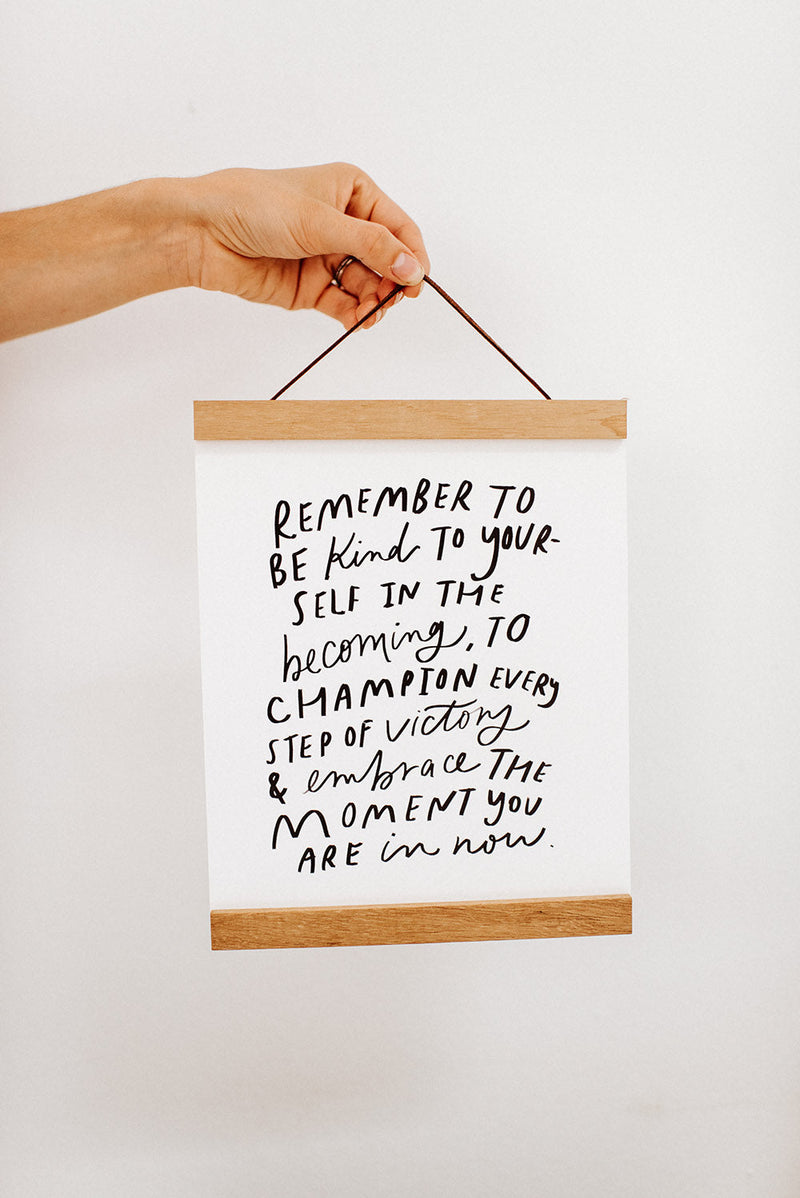 REMEMBER TO
BE kind TO YOUR-
SELF IN THE
becoming, TO
CHAMPION EVERY
STEP OF victory
& embrace THE
MOMENT YOU
ARE in now.